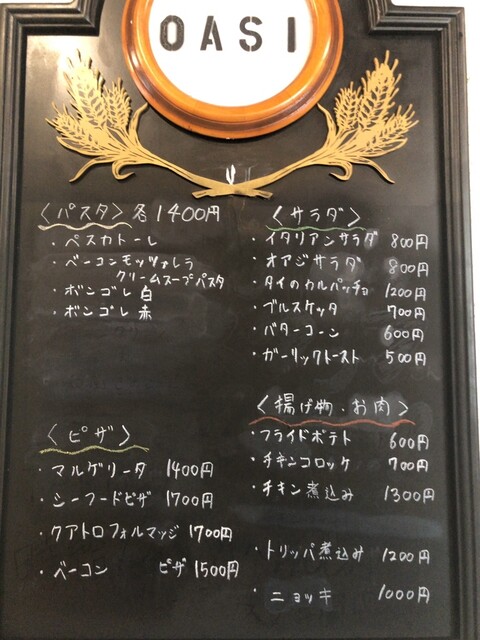 OASI
〈パスタ〉各1400円
・ペスカトーレ
・ベーコンモッツァレラ
クリームスープパスタ
・ボンゴレ白
・ボンゴレ赤
〈ピザ〉
・マルゲリータ 1400円
・シーフードピザ 1700円
・クアトロフォルマッジ 1700円
・ベーコン ピザ 1500円
〈サラダ〉
・イタリアンサラダ 800円
・オアジサラダ 800円
・タイのカルパッチョ 1200円
・ブルスケッタ 700円
・バターコーン 600円
・ガーリックトースト 500円
〈揚げ物・お肉〉
・フライドポテト 600円
・チキンコロッケ 700円
・チキン煮込み 1300円
・トリッパ煮込み 1200円
・ニョッキ 1000円